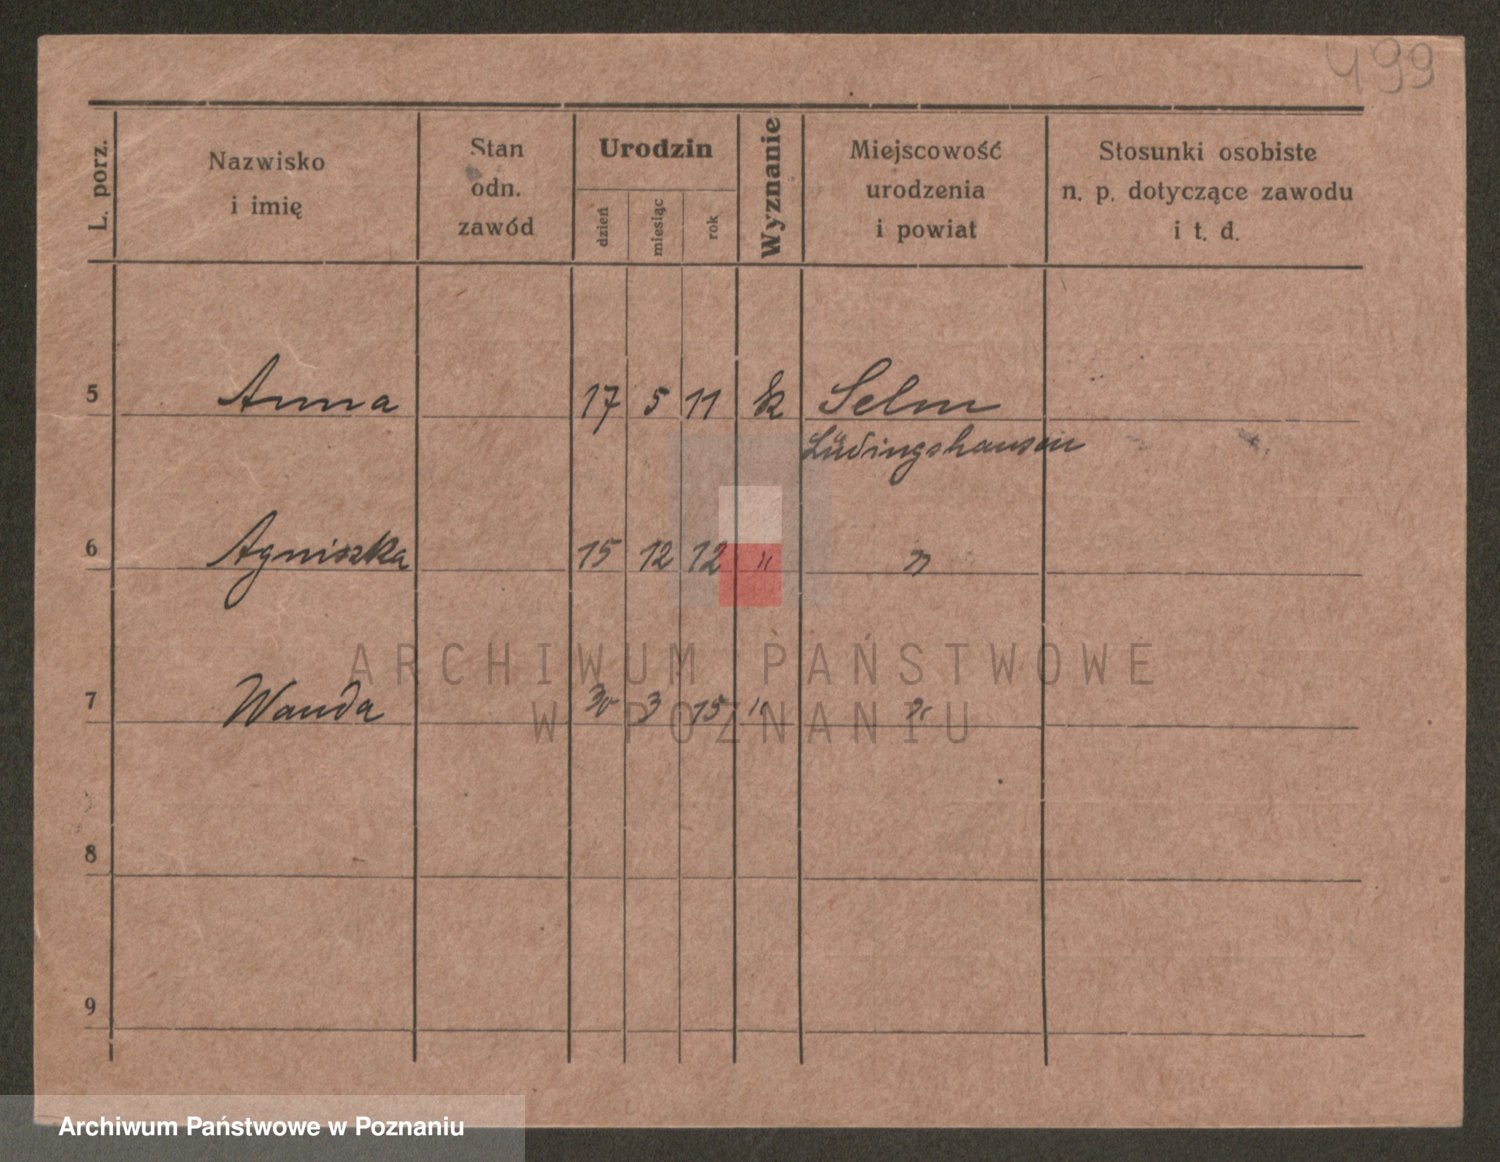 499
L. porz.
Nazwisko
i imię
Stan
odn.
zawód
Urodzin
dzień
miesiąc
rok
Wyznanie
Miejscowość
urodzenia
i powiat
Stosunki osobiste
n. p. dotyczące zawodu
i t. d.
5 Anna 17 5 11 k Selm
Lüdingshausen
6 Agniszka 15 12 12 " "
7 Wanda 30 3 15 " "
8
9
ARCHIWUM PAŃSTWOWE
W POZNANIU
Archiwum Państwowe w Poznaniu